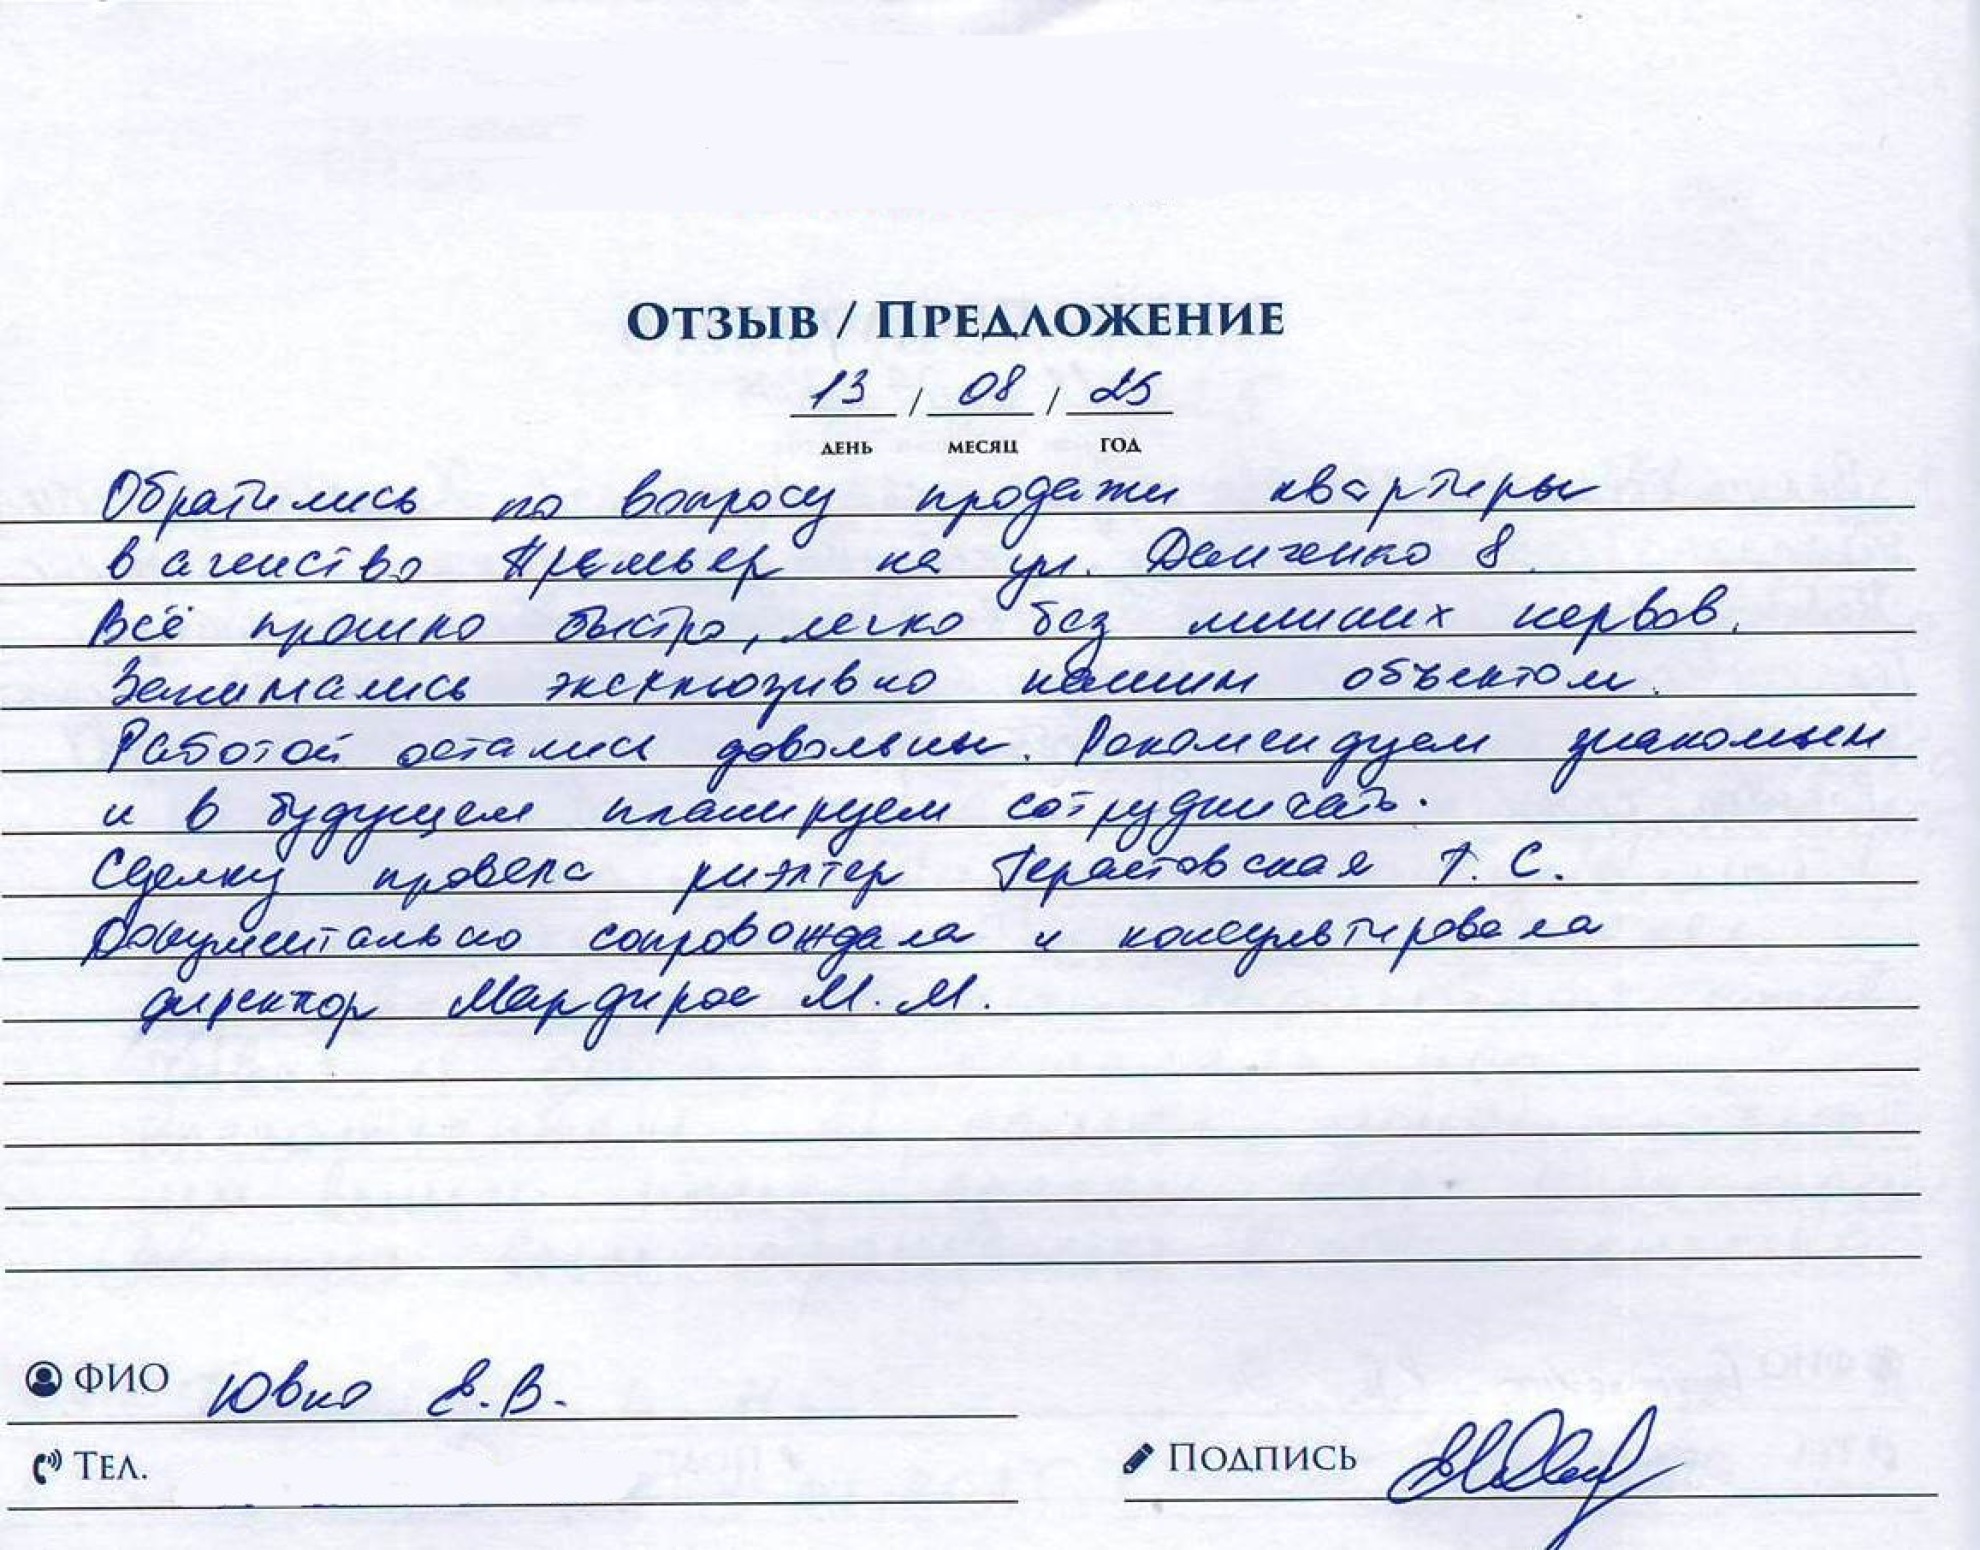 Отзыв / Предложение
13 / 08 / 25
день месяц год
Обратились по вопросу продажи квартиры
в агенство Премьер на ул. Демченко 8.
Всё прошло быстро, легко без лишних нервов.
Занимались эксклюзивно нашим объектом.
Работой остались довольны. Рекомендуем знакомым
и в будущем планируем сотрудничать.
Сделку провела риэлтер Герастовская Т. С.
Документально сопровождала и консультировала
директор Мардирос М. М.
ФИО Ювко Е. В.
Тел.
Подпись